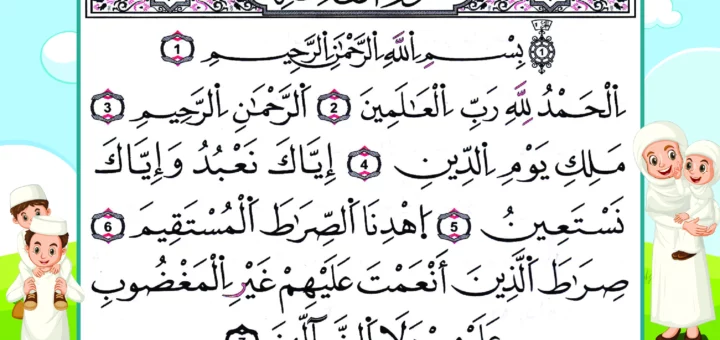 بِسْمِ اِ۬للَّهِ اِ۬لرَّحْمَٰنِ اِ۬لرَّحِيمِ 1
اِ۬لْحَمْدُ لِلَّهِ رَبِّ اِ۬لْعَٰلَمِينَ 2 اَ۬لرَّحْمَٰنِ اِ۬لرَّحِيمِ 3
مَلِكِ يَوْمِ اِ۬لدِّينِ 4 إِيَّاكَ نَعْبُدُ وَإِيَّاكَ
نَسْتَعِينُ 5 اِ۪هْدِنَا اَ۬لصِّرَٰطَ اَ۬لْمُسْتَقِيمَ 6
صِرَٰطَ اَ۬لَّذِينَ أَنْعَمْتَ عَلَيْهِمْ غَيْرِ اِ۬لْمَغْضُوبِ
عَلَيْهِمْ وَلَا اَ۬لضَّآلِّينَ